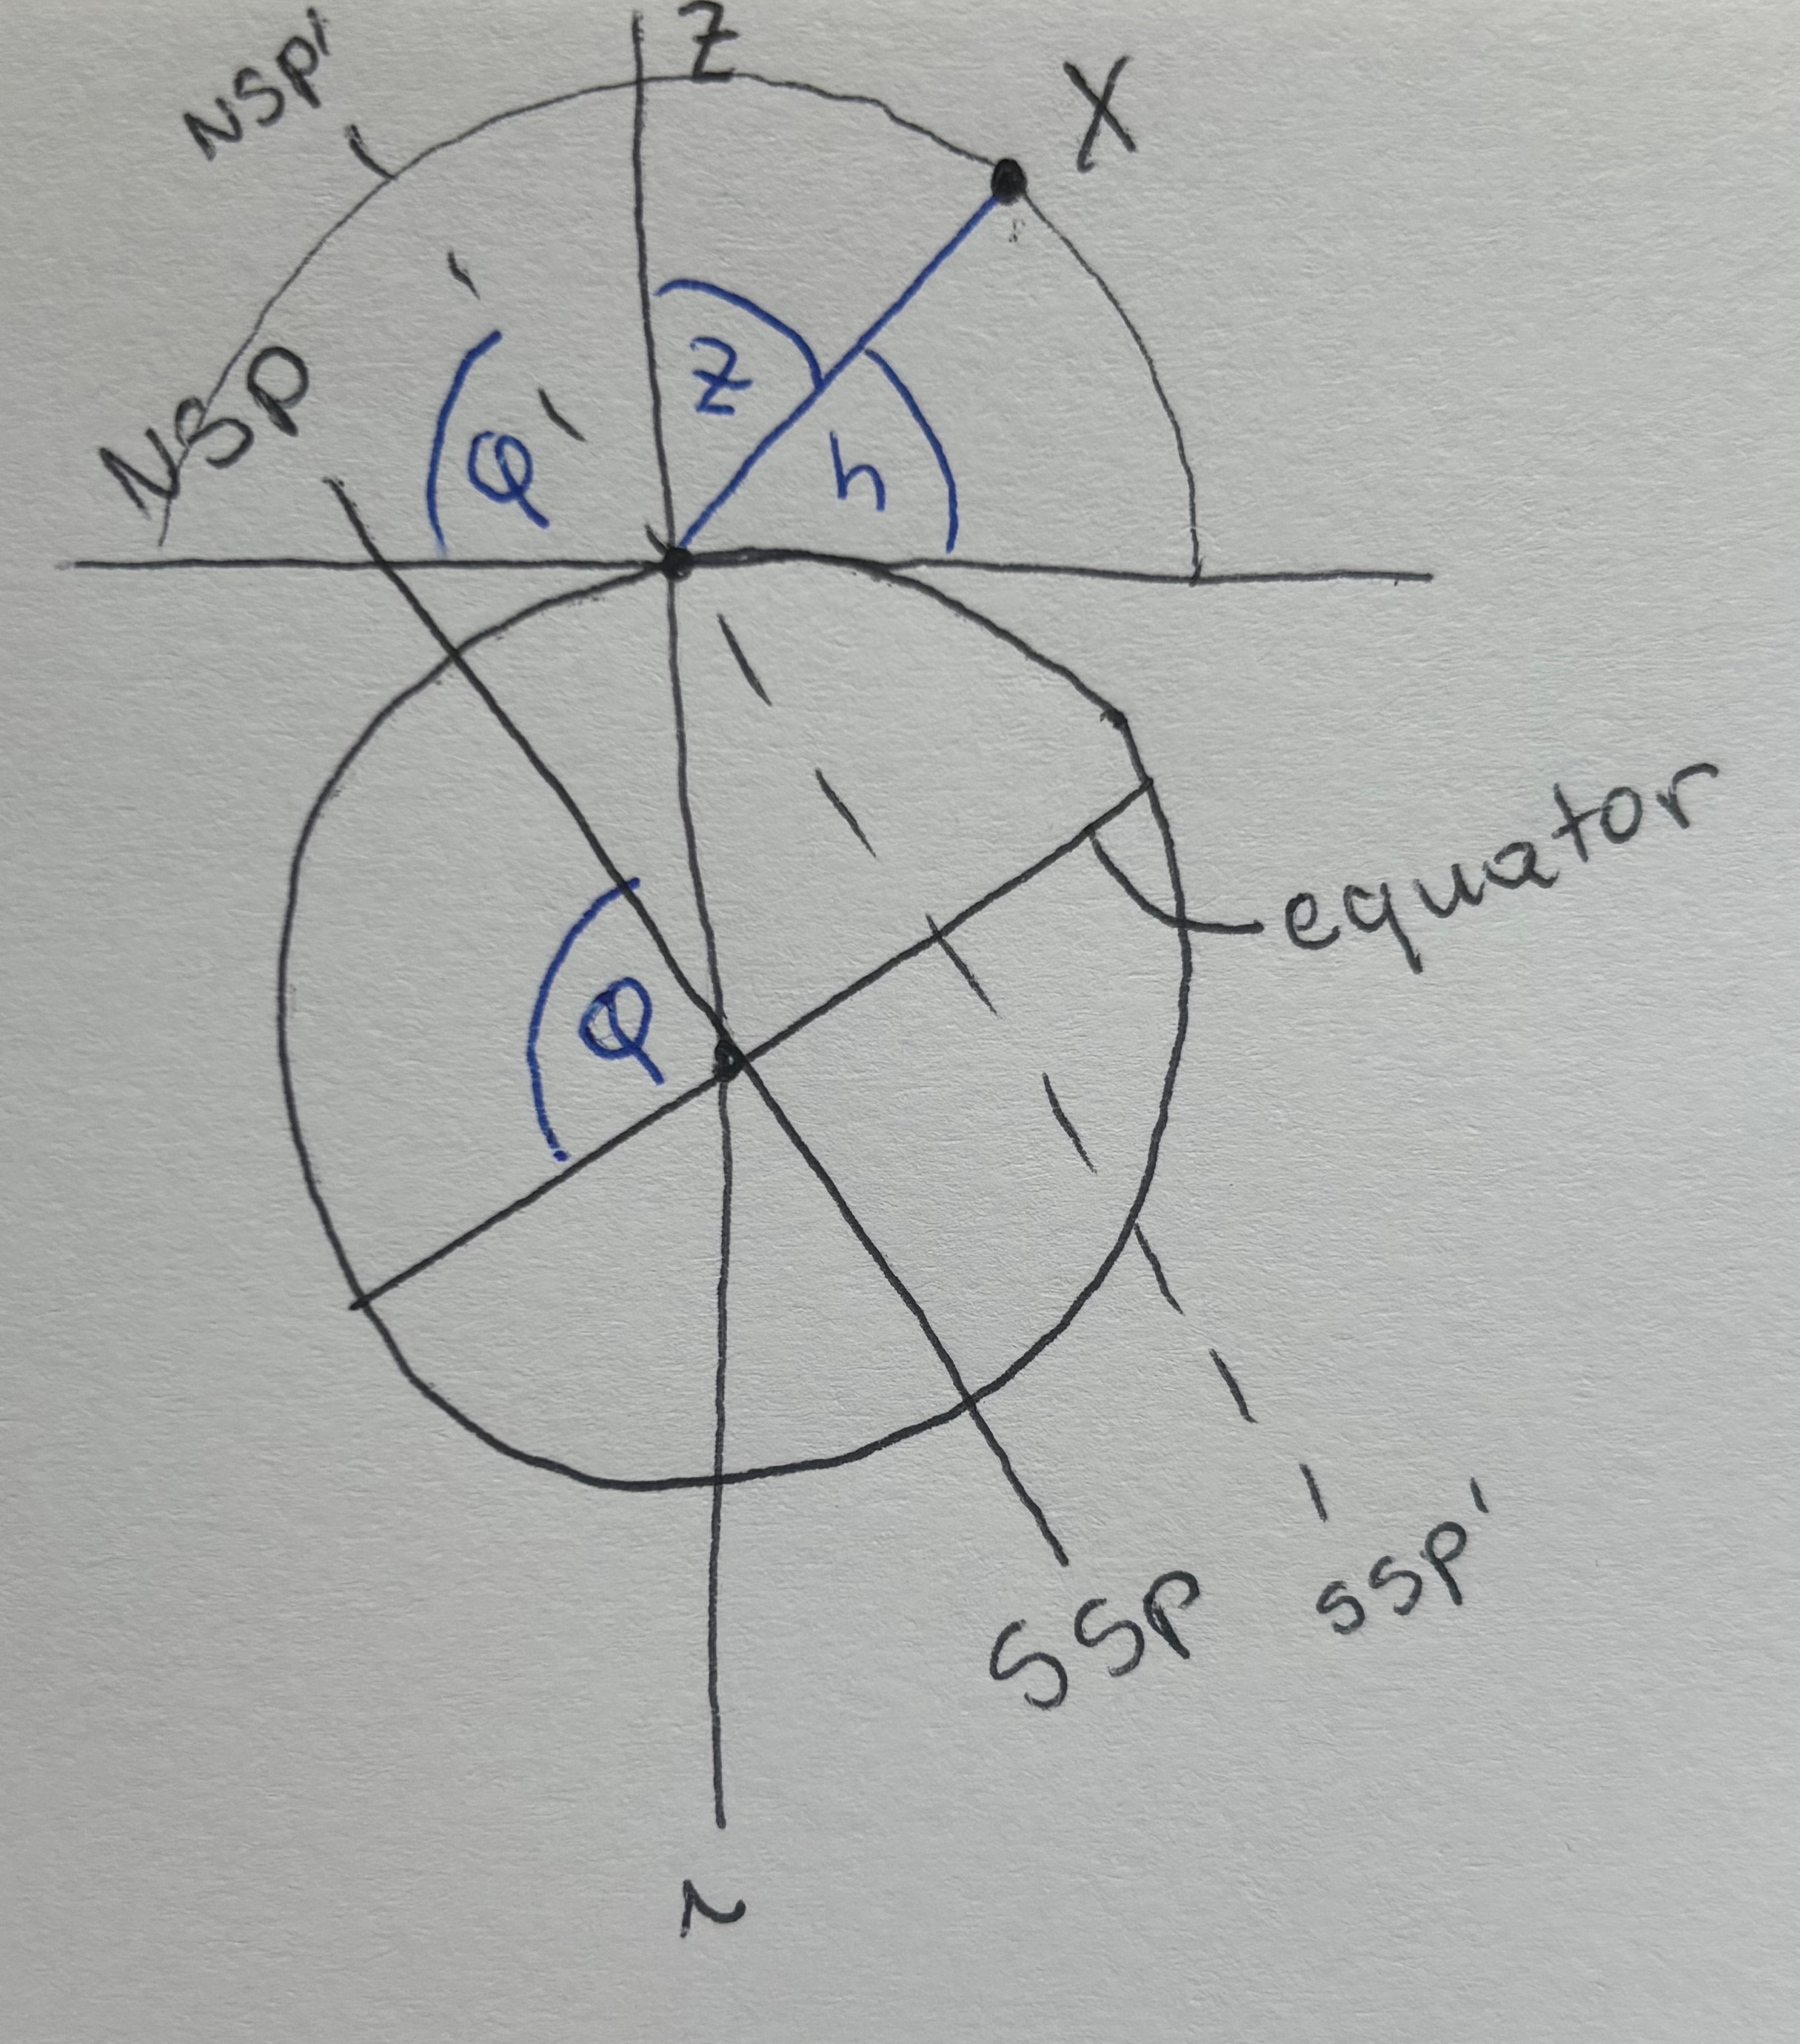 Z
NSP'
X
NSP
φ
z
h
equator
φ
SSP
SSP'
N